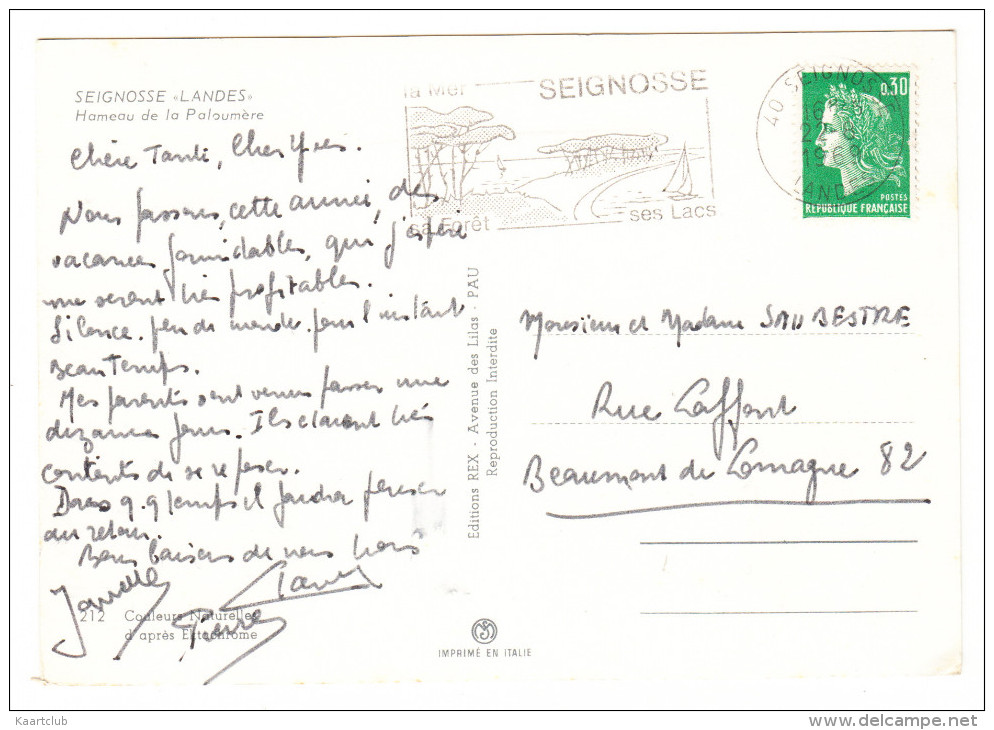 SEIGNOSSE «LANDES»
Hameau de la Paloumère
la Mer
SEIGNOSSE
sa Forêt
ses Lacs
40 SEIGNOSSE
16
22 - 8
19
LANDES
0,30
POSTES
RÉPUBLIQUE FRANÇAISE
Chère Tanti, Cher Yves.
Nous passons, cette année, des
vacances formidables, qui j'espère
me seront très profitables.
Silence. peu de monde. pour l'instant
Beau Temps.
Mes parents sont venus passer une
dizaine jours. Ils étaient très
contents de se reposer.
Dans q.q temps il faudra penser
au retour.
Bons baisers de nous trois
Pierre
212 Couleurs Naturelles
d'après Ektachrome
Editions REX - Avenue des Lilas - PAU
Reproduction Interdite
IMPRIMÉ EN ITALIE
Monsieur et Madame SAUBESTRE
Rue Laffont
Beaumont de Lomagne 82
Kaartclub
www.delcampe.net